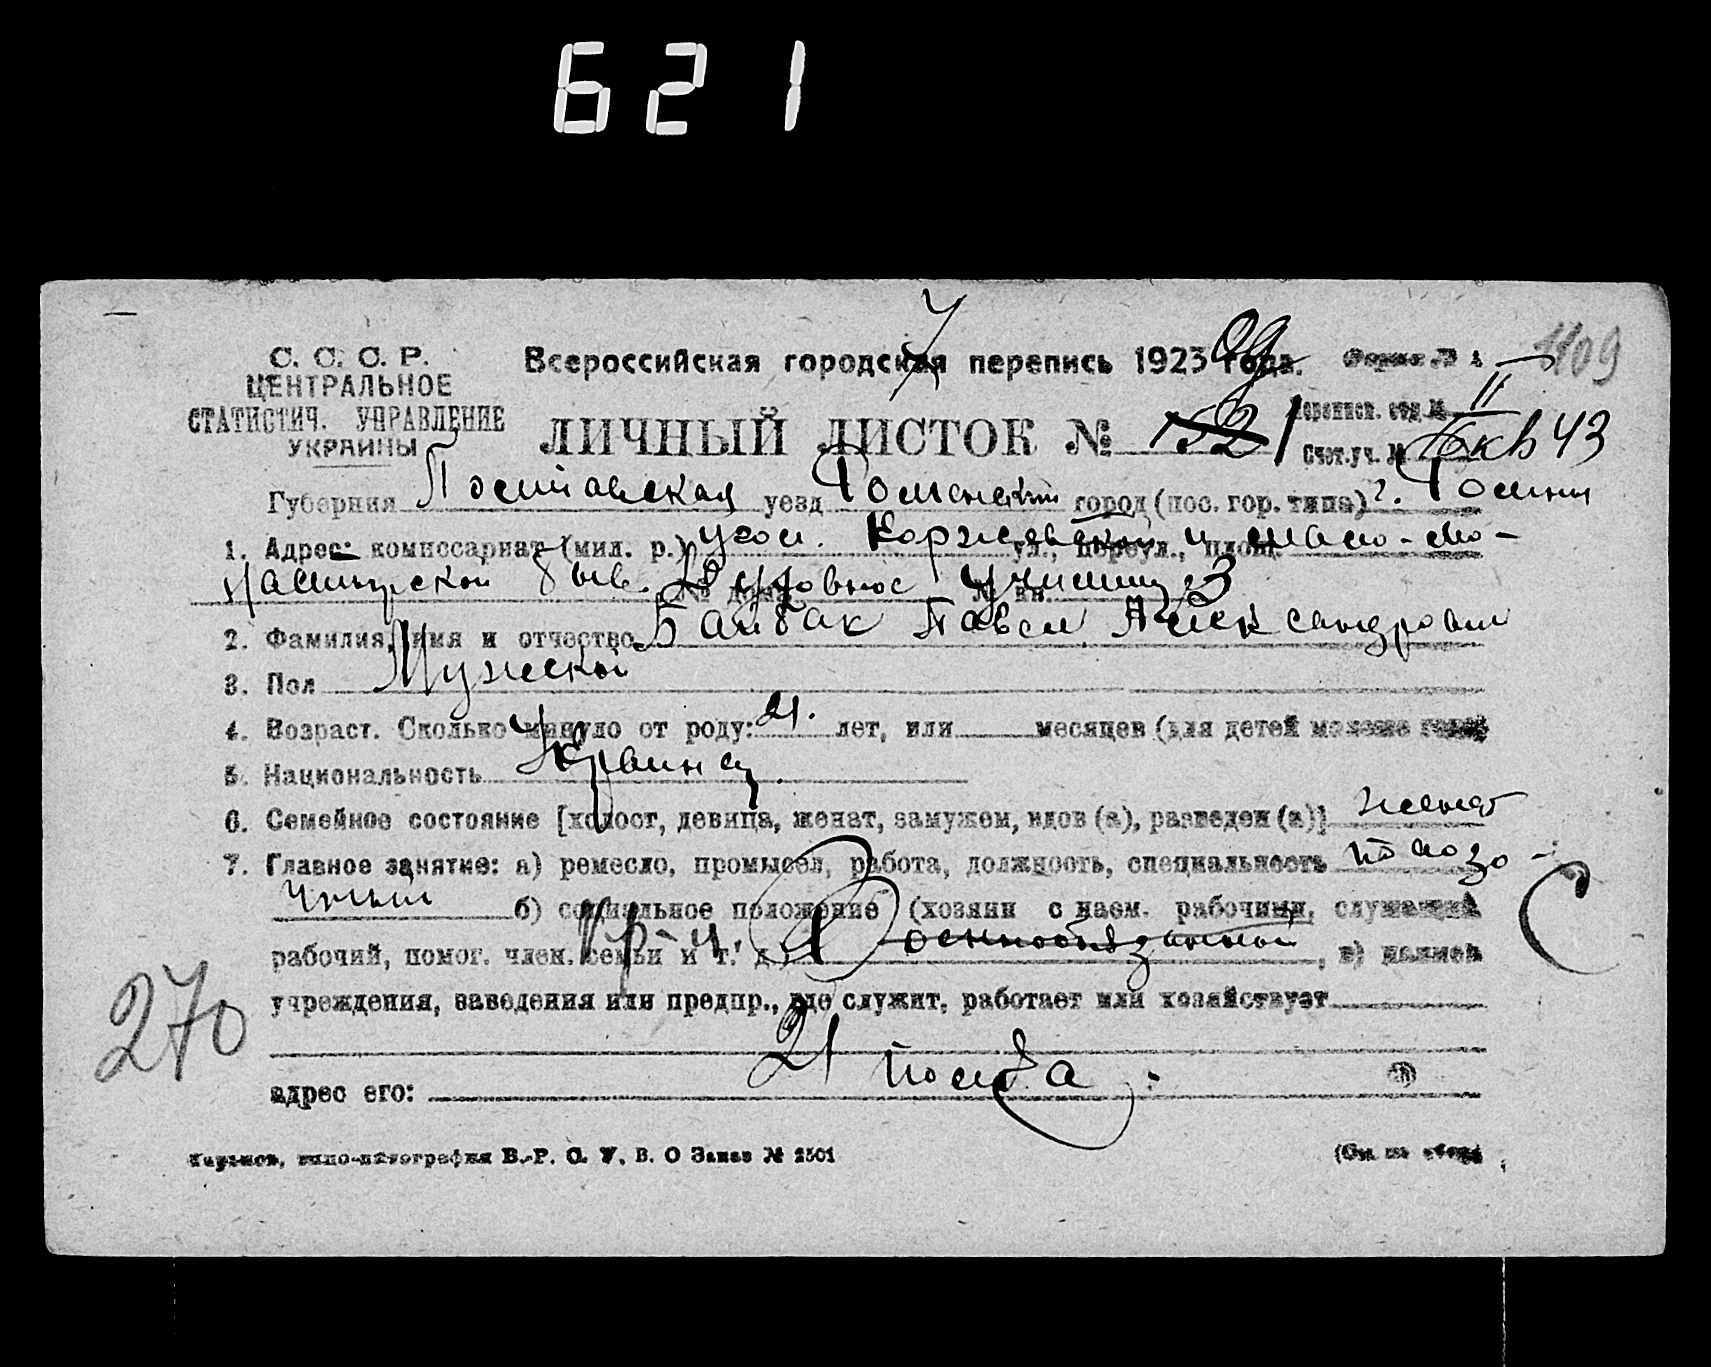 621
С. С. С. Р.
ЦЕНТРАЛЬНОЕ
СТАТИСТИЧ. УПРАВЛЕНИЕ
УКРАИНЫ
Всероссийская городская перепись 1923 года. Форма № 1
1109
ЛИЧНЫЙ ЛИСТОК № 1521
Перепися. отд. № II
Счет. уч. № кв 43
Губерния Полтавская уезд Роменский город (пос. гор. типа) г. Ромны
1. Адрес: комиссариат (мил. р.) угол. Коржевской и мало-мо-
ул., переул., площ.
настырской быв. Духовное училищ 3
№ дома № кв.
2. Фамилия, имя и отчество Байбак Павел Александрович
3. Пол Мужской
4. Возраст. Сколько минуло от роду: 21. лет, или месяцев (для детей моложе года)
5. Национальность Украинец
6. Семейное состояние [холост, девица, женат, замужем, вдов (а), разведен (а)] женат
7. Главное занятие: а) ремесло, промысел, работа, должность, специальность
б) социальное положение (хозяин с наем. рабочими, служащий
рабочий, помог. член. семьи и т. д.) Военнообязанный, в) название
учреждения, заведения или предпр., где служит, работает или хозяйствует
270
21 полка
адрес его:
Харьков, типо-литография В.-Р. С. У. В. О Заказ № 2501
(См. на обор.)